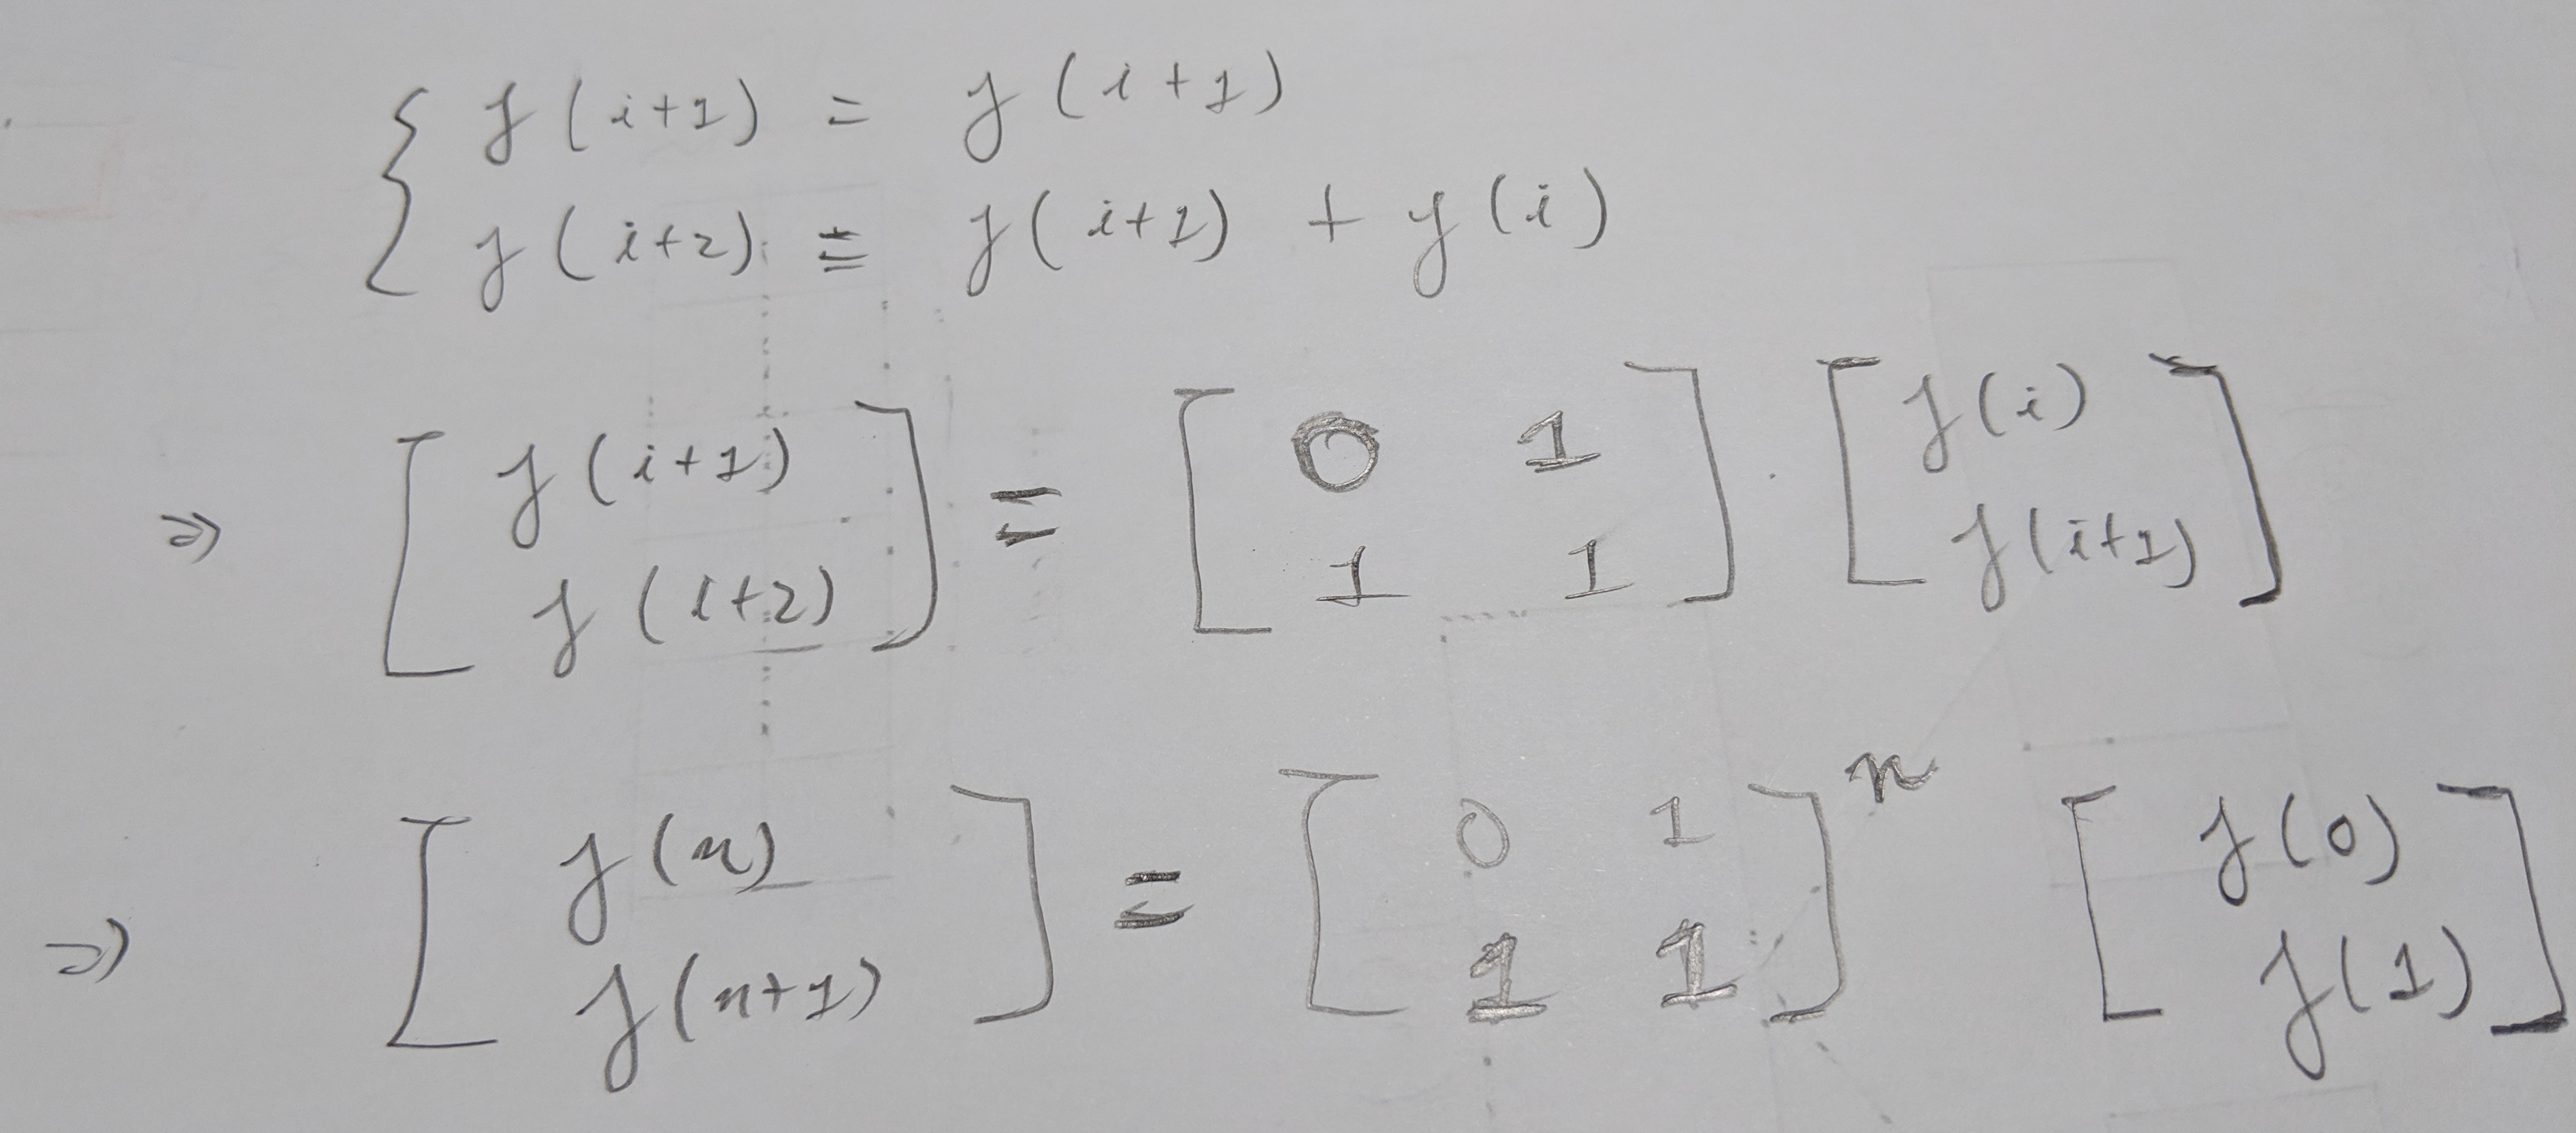 { f(i+1) = f(i+1)
f(i+2) = f(i+1) + f(i)
⇒ [ f(i+1) f(i+2) ] = [ 0 1 1 1 ] · [ f(i) f(i+1) ]
⇒ [ f(n) f(n+1) ] = [ 0 1 1 1 ]ⁿ [ f(0) f(1) ]